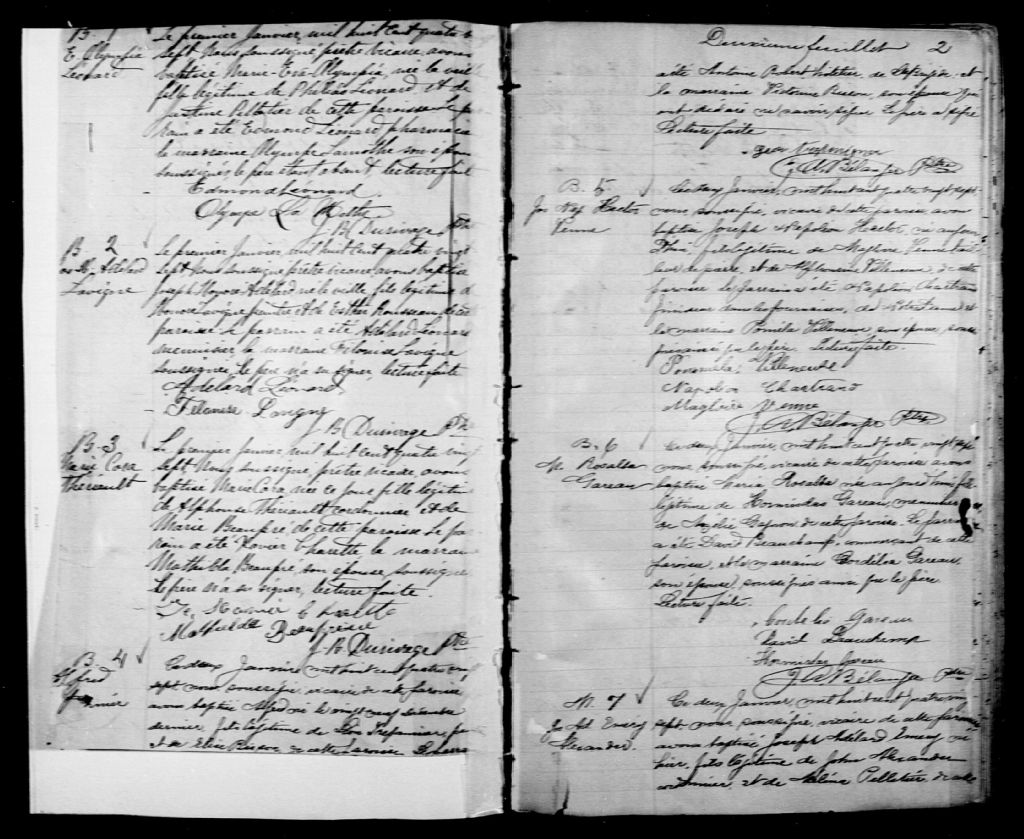 B. 1
E. Olympia
Léonard
Le premier Janvier, mil huit cent quatre v
Sept Nous soussigné prêtre vicaire, avons
baptisé Marie-Eva-Olympia, née la veille
fille légitime de Philéas Léonard, et de
Justine Pelletier de cette paroisse Le par
rain a été Edmond Léonard pharmaci
la marraine Olympe Lamothe son épou
soussignés, le père étant absent, lecture faite
Edmond Leonard
Olympe La Mothe
J. B. Durivage Ptre
B 2
Adélard
Lavigne
Le premier Janvier mil huit cent quatre vingt
sept Nous soussigné prêtre vicaire, avons baptisé
Joseph Honoré Adélard né la veille, fils légitime d
Honoré Lavigne peintre et de Esther Rousseau de cette
paroisse Le parrain a été Adélard Léonard
menuisier la marraine Filonise Lavigne
soussignés, le père n'a su signer, lecture faite
Adelard Léonard
Lavigny
J. B. Durivage Ptre
B 3
Marie Cora
Thériault
Le premier Janvier mil huit cent quatre ving
sept Nous soussigné, prêtre vicaire, avons
baptisé Marie Cora, née ce jour fille légitim
de Alphonse Thériault cordonnier et de
Marie Beaupré de cette paroisse Le par
rain a été Xavier Charette la marrain
Mathilde Beaupré son épouse, soussignés
Le père n'a su signer, lecture faite.
Xavier Charette
Mathilde Beaupré
J. B. Durivage Ptre
B. 4
Alfred
Ce deux Janvier mil huit cent quatre ving
sept nous soussigné, vicaire de cette paroisse
avons baptisé Alfred né le vingt cinq décembre
dernier, fils légitime de Trépanier,
et de Buron de cette paroisse
Deuxième feuillet 2
a été Antoine Robert hôtelier, de et
la marraine Victorine Buron, son épouse qui
ont déclaré ne savoir signer le père a signé
Lecture faite
J. A. Bélanger Ptre
B. 5
Jos Nap Hector
Venne
Ce deux Janvier, mil huit cent quatre vingt sept
nous soussigné, vicaire de cette paroisse avons
baptisé Joseph Napoléon Hector, né aujour
d'hui fils légitime de Magloire Venne
et de Villeneuve, de cette
paroisse le parrain a été Napoléon Chartrand
et
la marraine Villeneuve son épouse, sous
signés ainsi que le père Lecture faite.
Villeneuve
Napoleon Chartrand
Magloire Venne
J. A. Bélanger Ptre
B. 6
M. Rosalba
Gareau
Ce deux Janvier, mil huit cent quatre vingt sept
nous soussigné, vicaire de cette paroisse avons
baptisé Maria Rosalba née aujourd'hui fille
légitime de Hormisdas Gareau, menuisier
de Gagnon de cette paroisse. Le parrain
a été David Beauchamp, commerçant de cette
paroisse, et la marraine Cordélia Gareau
son épouse, soussignés ainsi que le père
Lecture faite.
Cordelia Gareau
David Beauchamp
Hormisdas Gareau
J. A. Bélanger Ptre
7
Emery
Alexander.
Ce deux Janvier, mil huit cent quatre ving
sept. nous soussigné, vicaire de cette paroisse
avons baptisé Joseph Adélard Emery né
hier, fils légitime de John Alexander
cordonnier, et de Pelletier, de cette